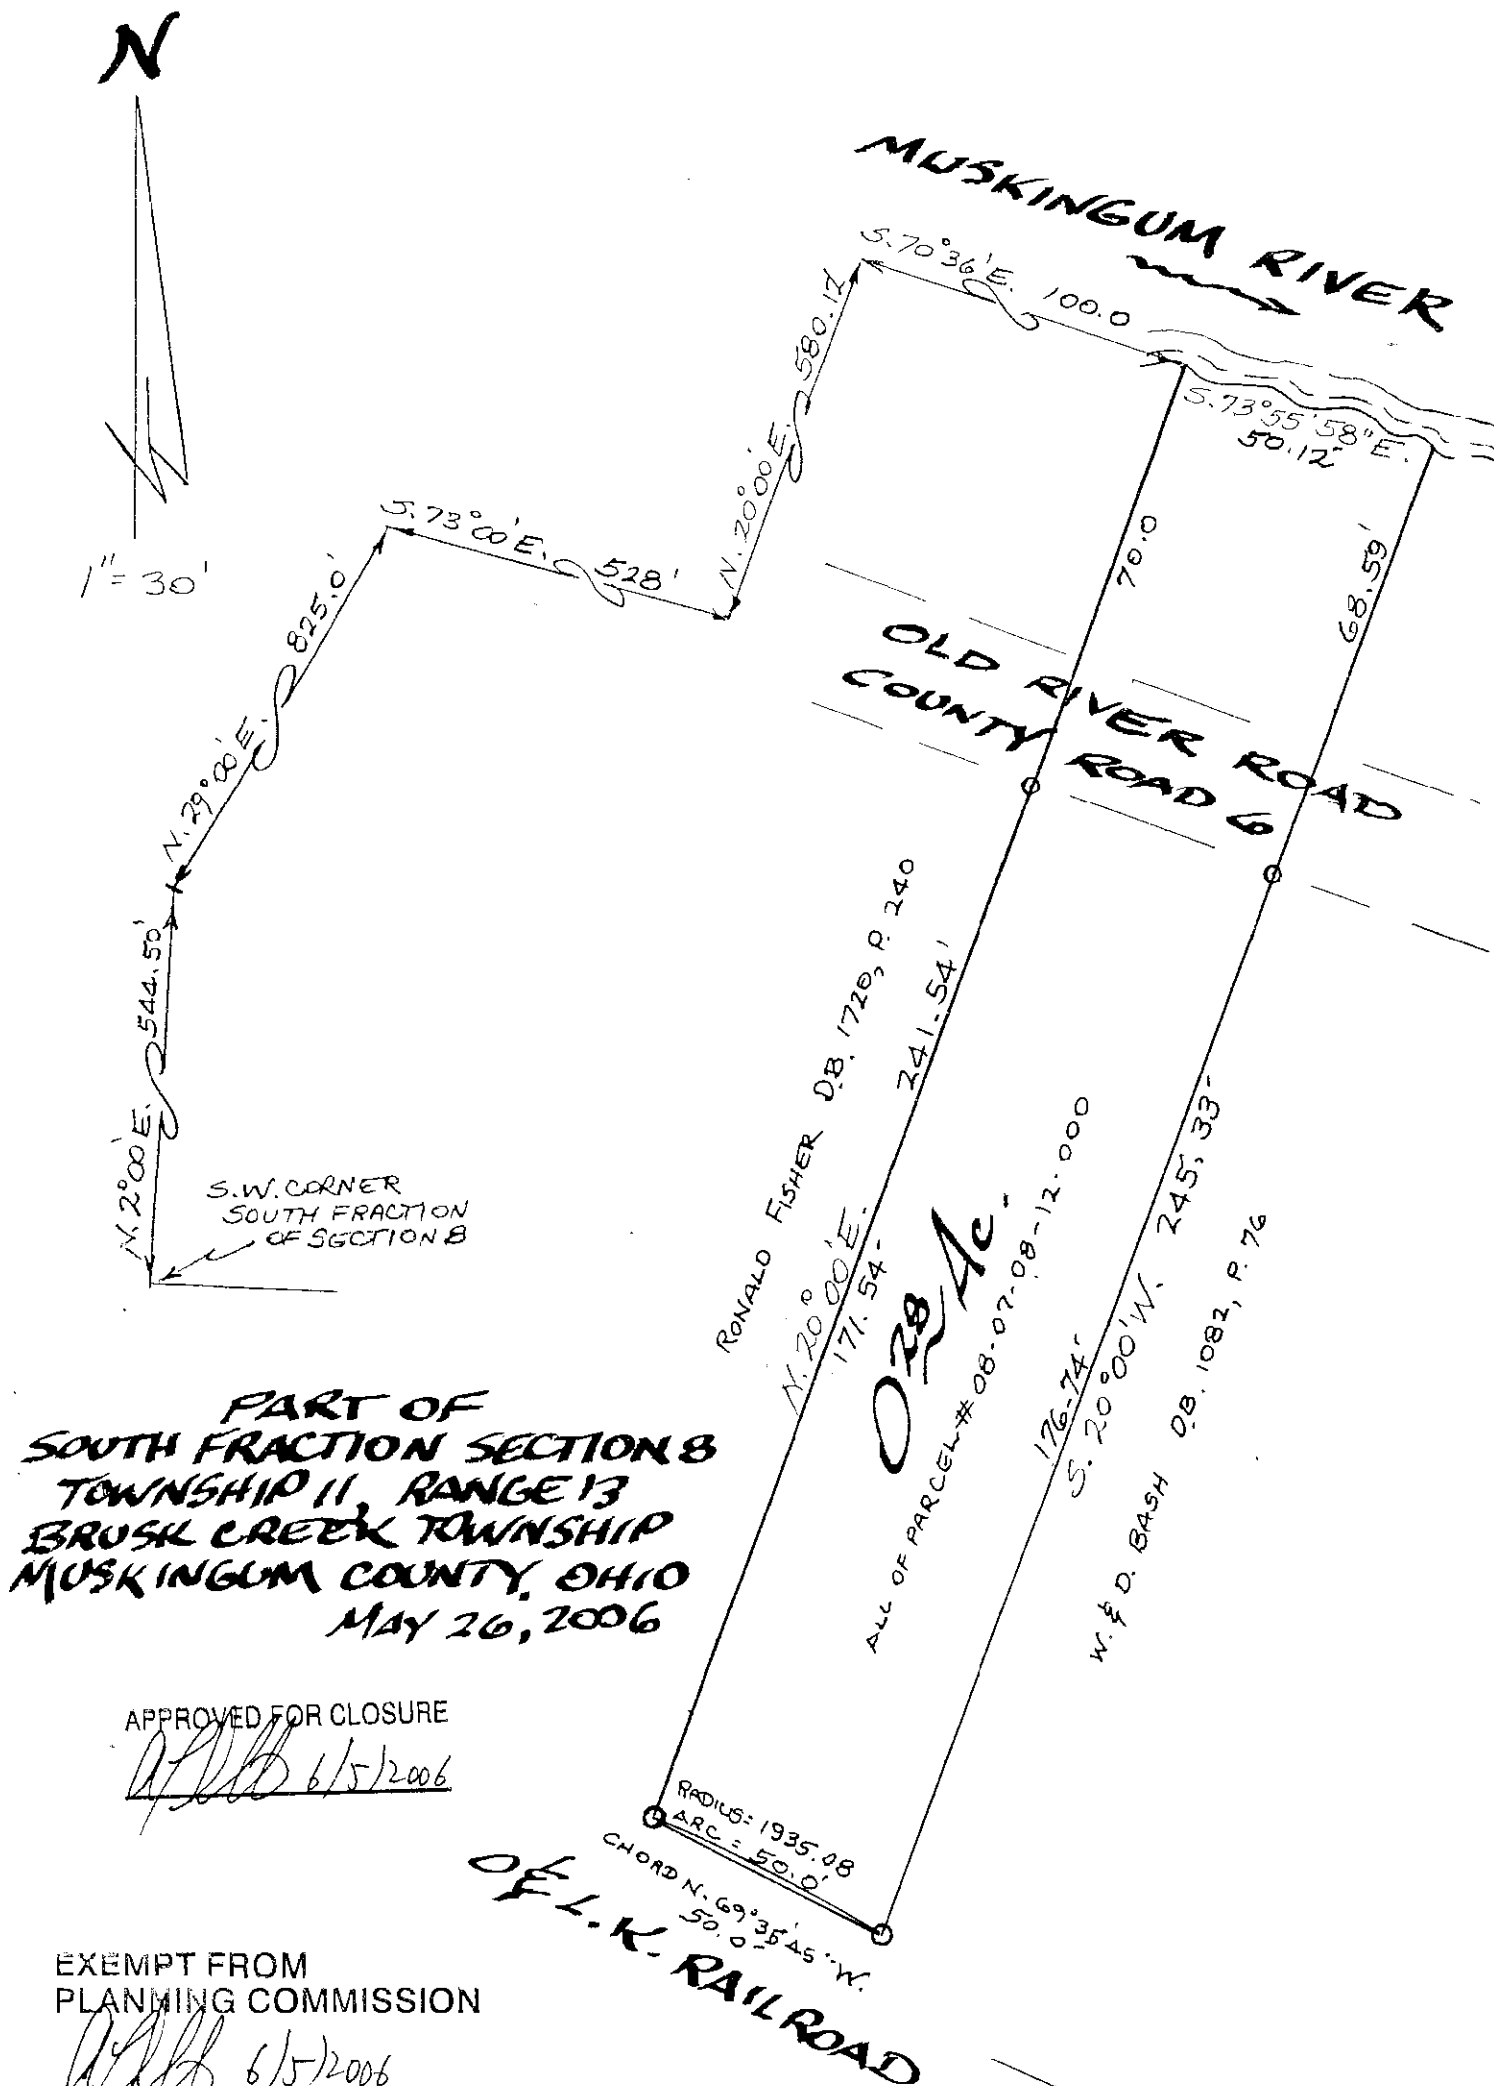 N
1" = 30'
MUSKINGUM RIVER
S. 70° 36' E. 100.0
N. 20° 00' E. 580.12
S. 73° 55' 58" E.
50.12'
S. 73° 00' E. 528'
N. 29° 00' E. 825.0'
N. 2° 00' E. 544.50'
S.W. CORNER
SOUTH FRACTION
OF SECTION 8
70.0
68.59'
OLD RIVER ROAD
COUNTY ROAD 6
RONALD FISHER D.B. 1720, P. 240
241.54'
N. 20° 00' E.
171.54'
0.28 Ac.
ALL OF PARCEL # 08-07-08-12-000
245.33'
176.74'
S. 20° 00' W.
W. & D. BASH D.B. 1082, P. 76
PART OF
SOUTH FRACTION SECTION 8
TOWNSHIP 11, RANGE 13
BRUSK CREEK TOWNSHIP
MUSKINGUM COUNTY, OHIO
MAY 26, 2006
APPROVED FOR CLOSURE
6/5/2006
RADIUS = 1935.08
ARC = 50.0'
CHORD N. 69° 35' 45" W.
50.0'
O & L.K. RAILROAD
EXEMPT FROM
PLANNING COMMISSION
6/5/2006